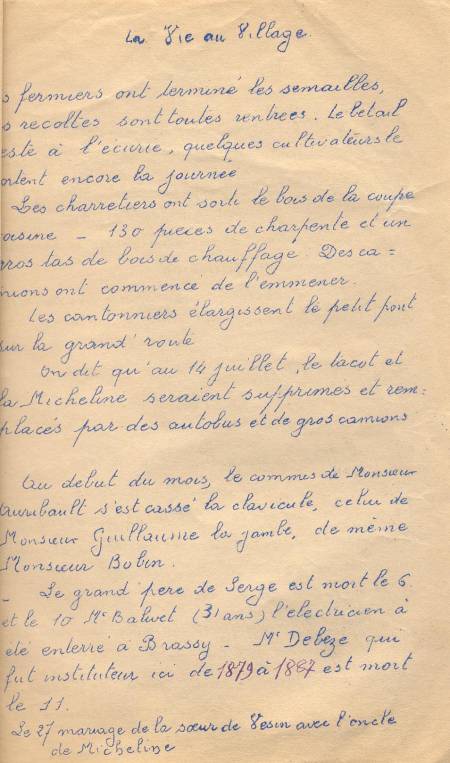 La Vie au Village.
s fermiers ont terminé les semailles,
s recoltes sont toutes rentrées. Le bétail
esté à l'écurie, quelques cultivateurs le
ortent encore la journée
Les charretiers ont sorti le bois de la coupe
oisine - 130 pièces de charpente et un
ros tas de bois de chauffage. Des ca =
mions ont commencé de l'emmener.
Les cantonniers élargissent le petit pont
sur la grand' route
On dit qu'au 14 juillet, le tacot et
la Micheline seraient supprimés et rem=
placés par des autobus et de gros camions
Au début du mois, le commis de Monsieur
s'est cassé la clavicule, celui de
Monsieur Guillaume la jambe, de même
Monsieur Bobin.
- Le grand père de Serge est mort le 6.
et le 10 Mr Baluet (31 ans) l'électricien à
été enterré à Brassy - Mr Debèze qui
fut instituteur ici de 1879 à 1887 est mort
le 11.
Le 27 mariage de la sœur de Vesin avec l'oncle
de Micheline